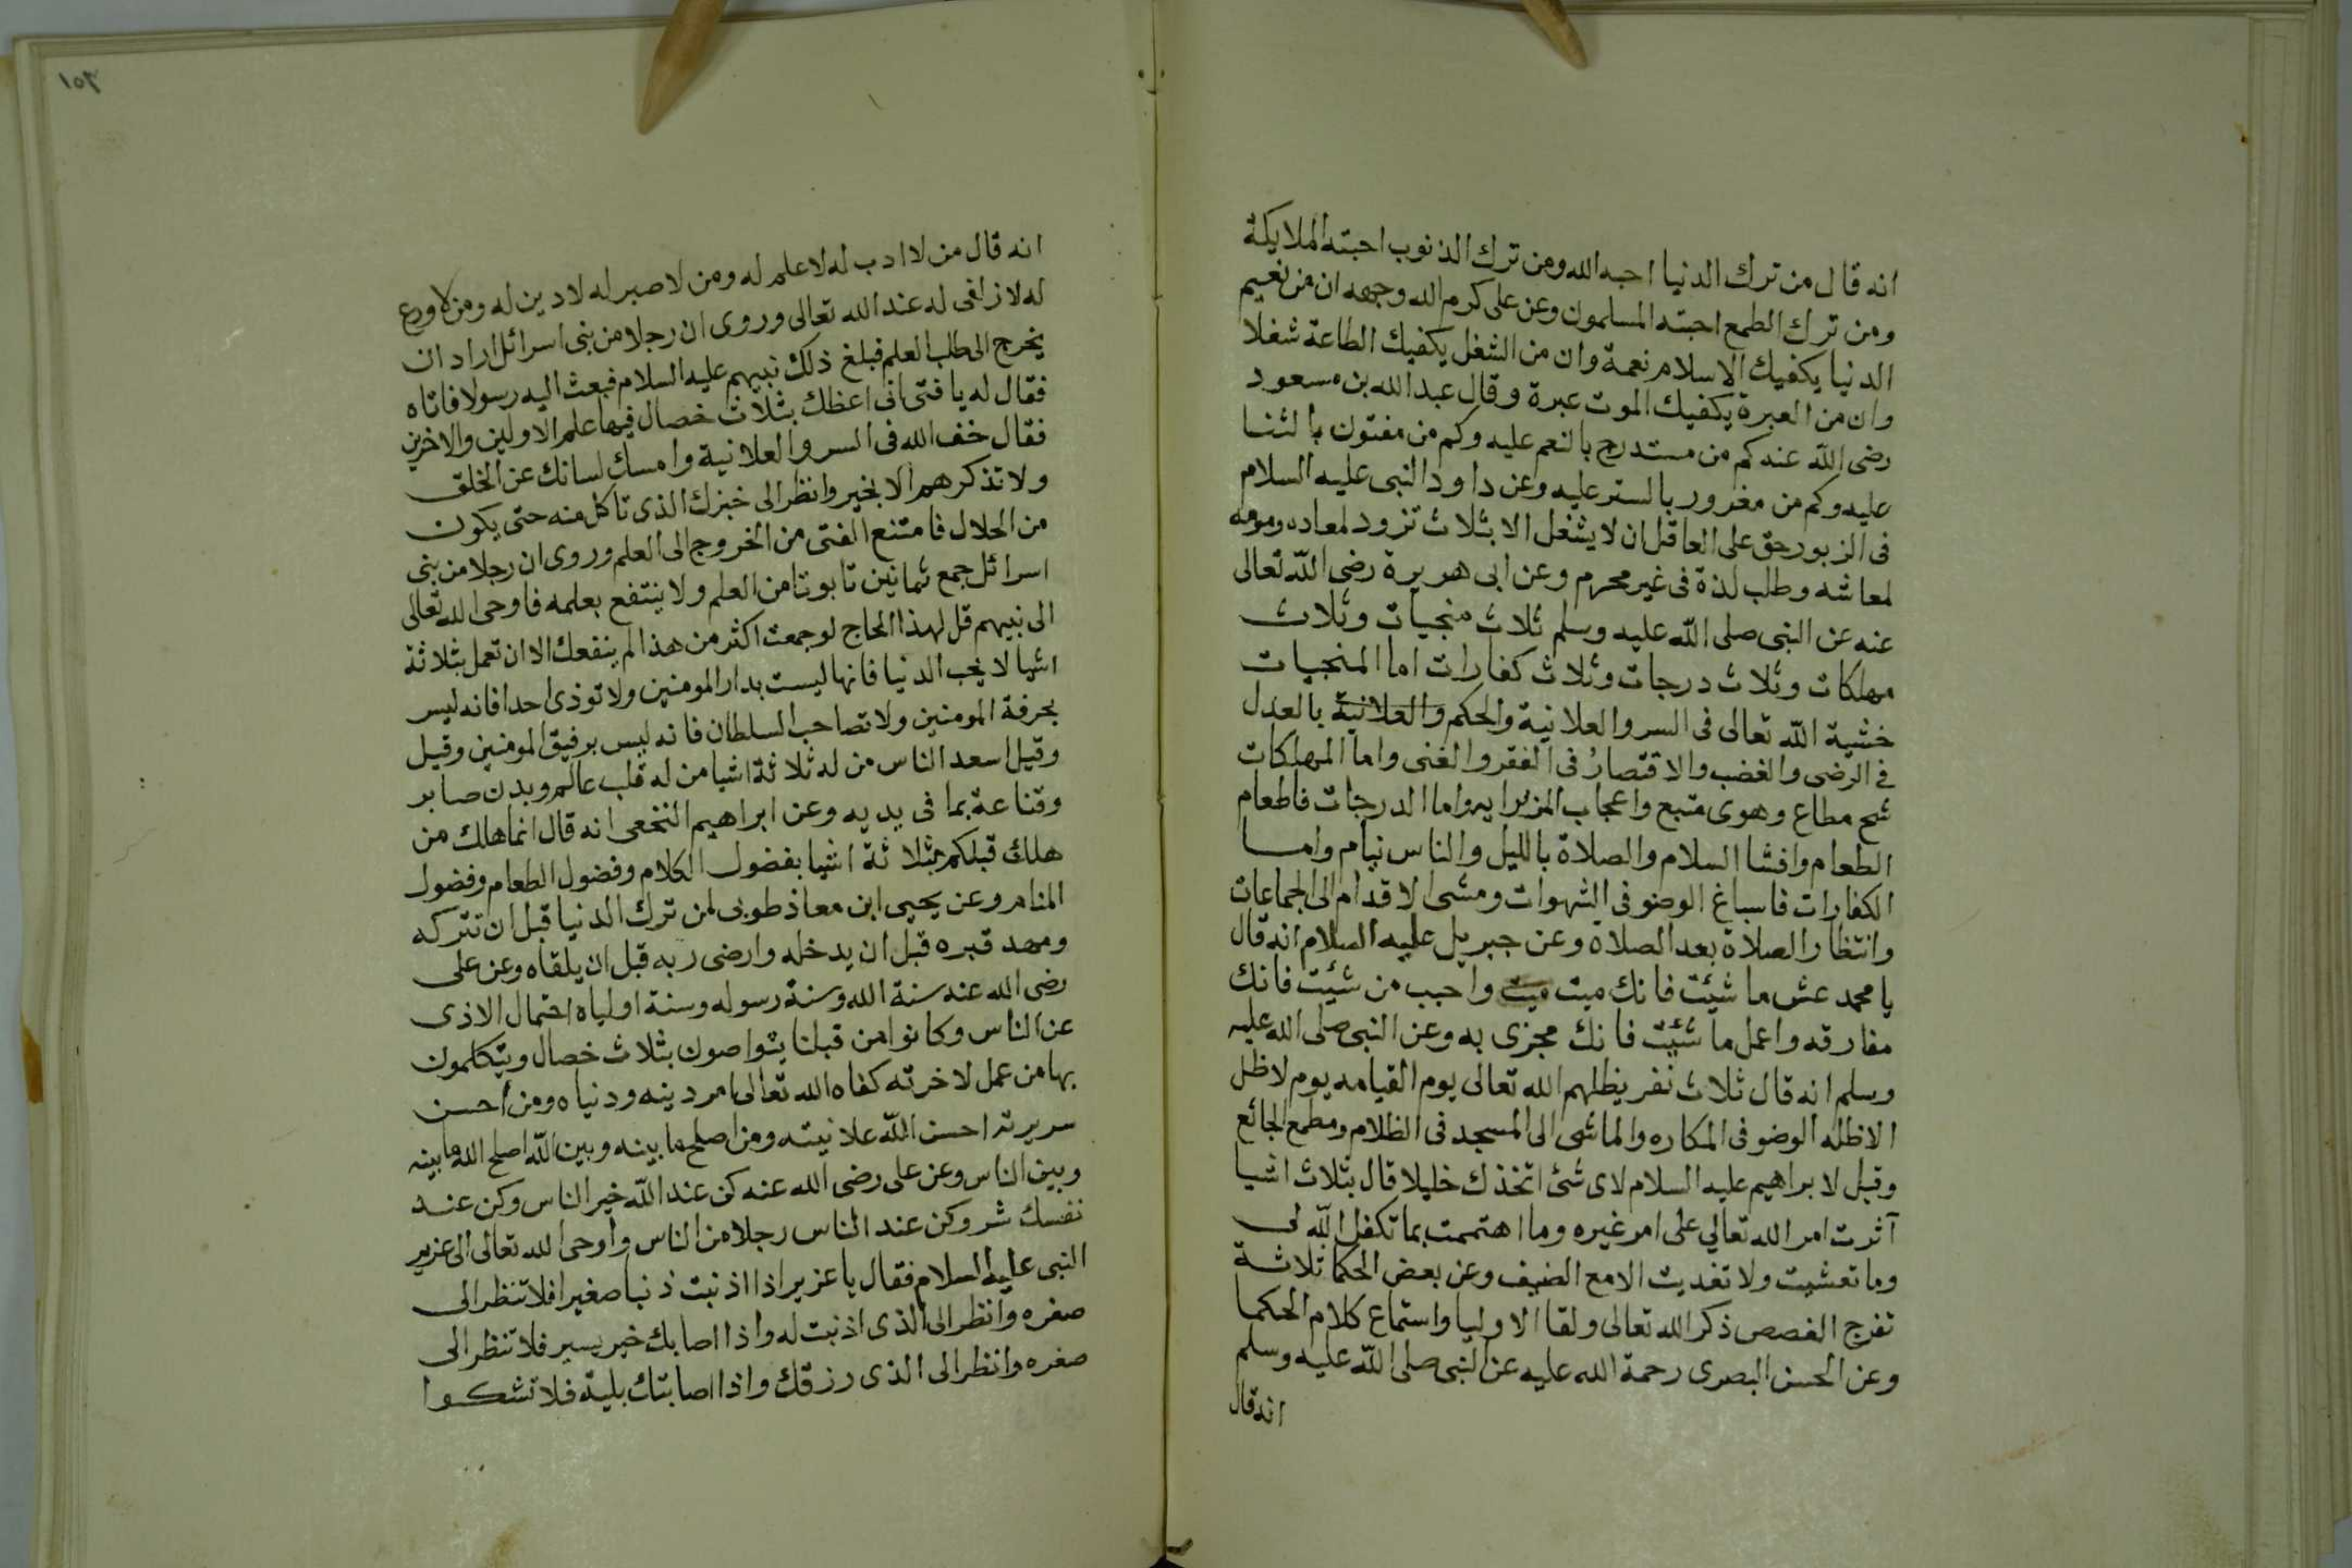 انه قال من ترك الدنيا احبه الله ومن ترك الذنوب احبته الملايكة
ومن ترك الطمع احبته المسلمون وعن على كرم الله وجهه ان من نعيم
الدنيا يكفيك الاسلام نعمة وان من الشغل يكفيك الطاعة شغلا
وان من العبرة يكفيك الموت عبرة وقال عبد الله بن مسعود
رضى الله عنه كم من مستدرج بالنعم عليه وكم من مفتون بالثنا
عليه وكم من مغرور بالستر عليه وعن داود النبى عليه السلام
فى الزبور حق على العاقل ان لا يشغل الا بثلاث تزود لمعاده ومومه
لمعاشه وطلب لذة فى غير محرم وعن ابى هريرة رضى الله تعالى
عنه عن النبى صلى الله عليه وسلم ثلاث منجيات وثلاث
مهلكات وثلاث درجات وثلاث كفارات اما المنجيات
خشية الله تعالى فى السر والعلانية والحكم والعلانية بالعدل
فى الرضى والغضب والاقتصار فى الفقر والغنى واما المهلكات
شح مطاع وهوى متبع واعجاب المرء برايه واما الدرجات فاطعام
الطعام وافشا السلام والصلاة بالليل والناس نيام واما
الكفارات فاسباغ الوضو فى الشهوات ومشى الاقدام الى الجماعات
وانتظار الصلاة بعد الصلاة وعن جبريل عليه السلام انه قال
يا محمد عش ما شيئت فانك ميت ميت واحبب من شيئت فانك
مفارقه واعمل ما شيئت فانك مجزى به وعن النبى صلى الله عليه
وسلم انه قال ثلاث نفر يظلهم الله تعالى يوم القيامه يوم لا ظل
الا ظله الوضو فى المكاره والماشى الى المسجد فى الظلام ومطمع الجائع
وقيل لابراهيم عليه السلام لاى شئ اتخذك خليلا قال بثلاث اشيا
آثرت امر الله تعالى على امر غيره وما اهتممت بما تكفل الله لى
وما تعشيت ولا تغديت الا مع الضيف وعن بعض الحكما ثلاثة
تفرج الغصص ذكر الله تعالى ولقا الاوليا واستماع كلام الحكما
وعن الحسن البصرى رحمة الله عليه عن النبى صلى الله عليه وسلم
انه قال
١٥٢
انه قال من لا ادب له لا علم له ومن لا صبر له لا دين له ومن لا ورع
له لا زلفى له عند الله تعالى وروى ان رجلا من بنى اسرائل اراد ان
يخرج الى طلب العلم فبلغ ذلك نبيهم عليه السلام فبعث اليه رسولا فاتاه
فقال له يا فتى انى اعظك بثلاث خصال فيها علم الاولين والاخرين
فقال خف الله فى السر والعلانية وامسك لسانك عن الخلق
ولا تذكرهم الا بخير وانظر الى خبزك الذى تاكل منه حتى يكون
من الحلال فامتنع الفتى من الخروج الى العلم وروى ان رجلا من بنى
اسرائل جمع ثمانين تابوتا من العلم ولا ينتفع بعلمه فاوحى الله تعالى
الى نبيهم قل لهذا الحاج لو جمعت اكثر من هذا لم ينفعك الا ان تعمل بثلاثة
اشيا لا يحب الدنيا فانها ليست بدار المومنين ولا توذى احدا فانه ليس
بحرفة المومنين ولا تصاحب السلطان فانه ليس برفيق المومنين وقيل
وقيل اسعد الناس من له ثلاثة اشيا من له قلب عالم وبدن صابر
وقناعة بما فى يديه وعن ابراهيم النخعى انه قال انما هلك من
هلك قبلكم بثلاثة اشيا بفضول الكلام وفضول الطعام وفضول
المنام وعن يحيى ابن معاذ طوبى لمن ترك الدنيا قبل ان تتركه
ومهد قبره قبل ان يدخله وارضى ربه قبل ان يلقاه وعن على
رضى الله عنه سنة الله وسنة رسوله وسنة اولياه احتمال الاذى
عن الناس وكانوا من قبلنا يتواصون بثلاث خصال ويتكلمون
بها من عمل لاخرته كفاه الله تعالى امر دينه ودنياه ومن احسن
سريرته احسن الله علانيته ومن اصلح ما بينه وبين الله اصلح الله ما بينه
وبين الناس وعن على رضى الله عنه كن عند الله خير الناس وكن عند
نفسك شر وكن عند الناس رجلا من الناس واوحى الله تعالى الى عزير
النبى عليه السلام فقال يا عزير اذا اذنبت ذنبا صغيرا فلا تنظر الى
صغره وانظر الى الذى اذنبت له واذا اصابك خير يسير فلا تنظر الى
صغره وانظر الى الذى رزقك واذا اصابتك بلية فلا تشكوا